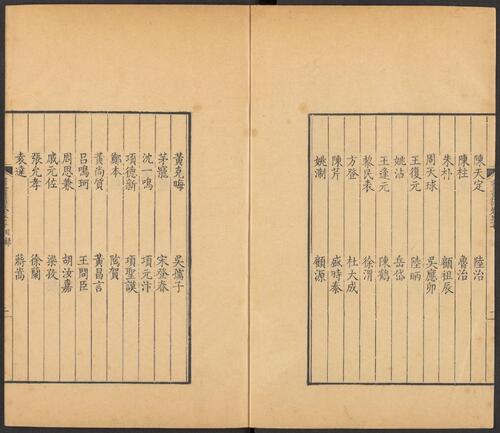 陳天定 陸治
陳柱 魯治
朱朴 顧祖辰
周天球 吳應卯
王復元 陸昞
姚沾 岳岱
王逢元 陳鶴
黎民表 徐渭
方登 杜大成
陳芹 盛時泰
姚淛 顧源
黃克晦 吳孺子
茅寵 宋登春
沈一鳴 項元汴
項德新 項聖謨
鄭本 陶賀
黃尚質 黃昌言
呂鳴珂 王問臣
周恩兼 胡汝嘉
戚元佐 梁孜
張允孝 徐蘭
袁達 蔣嵩